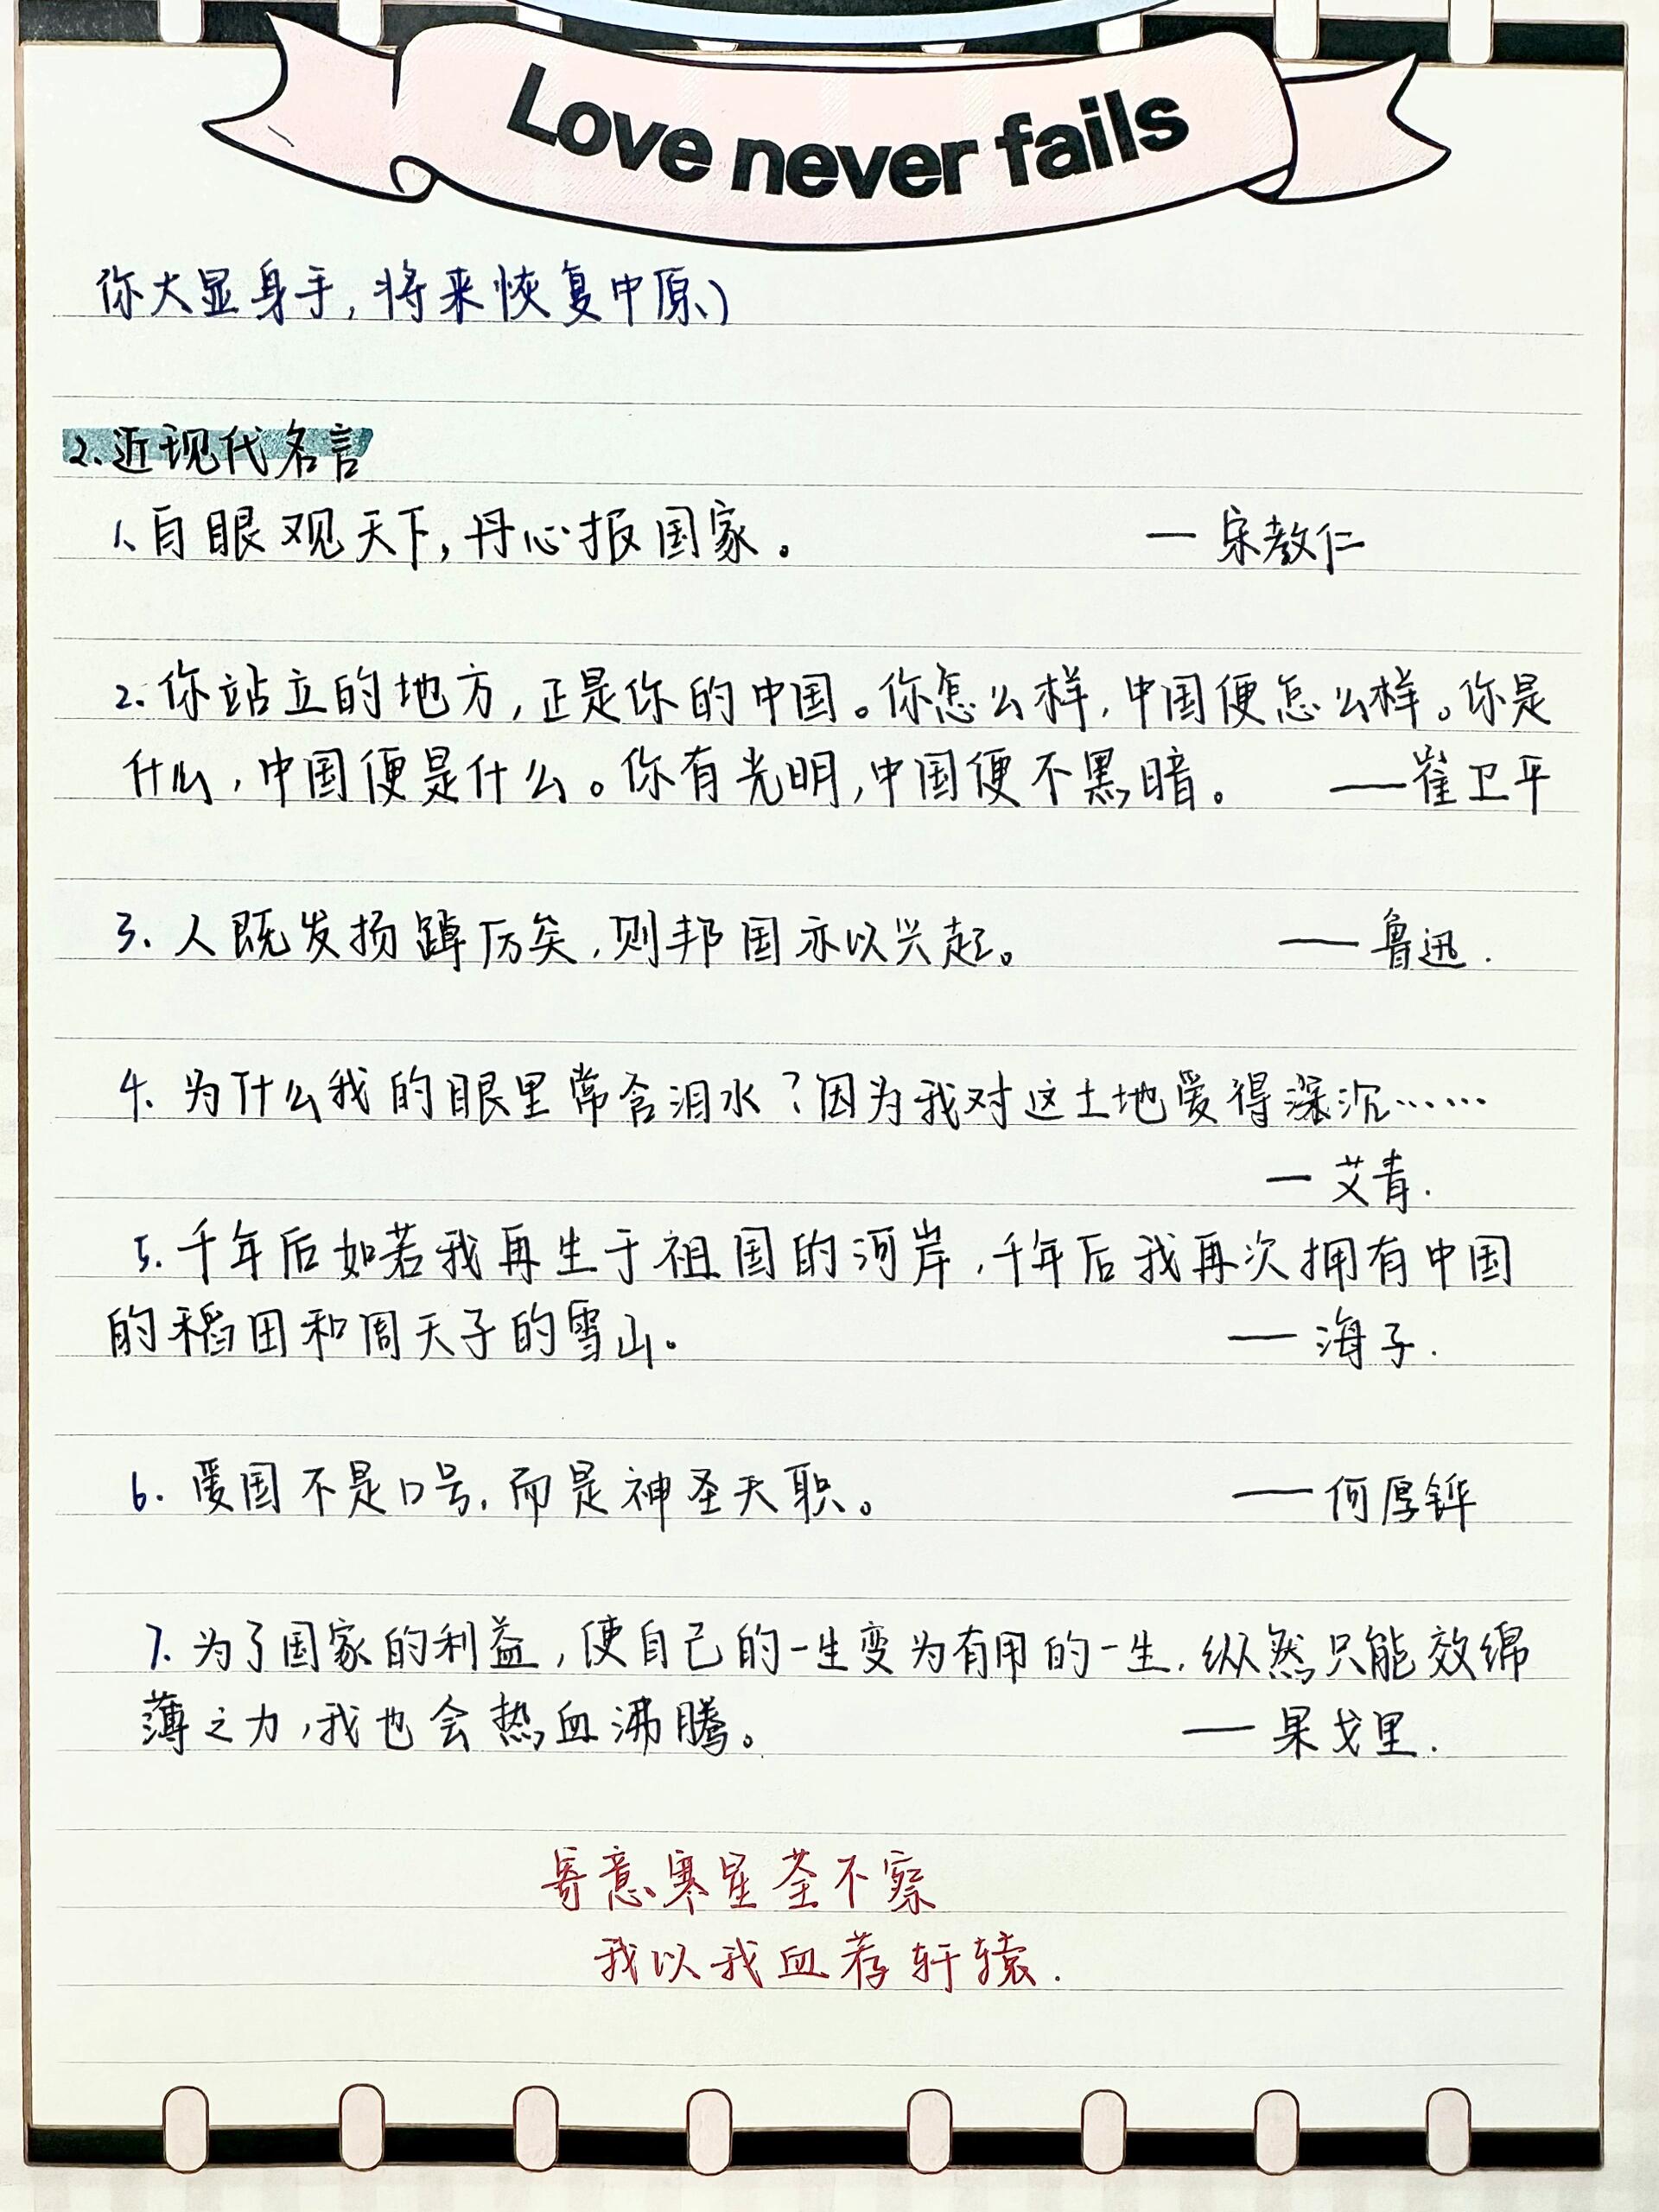 Love never fails
你大显身手,将来恢复中原、)
2.近现代名言
1、自眼观天下,丹心报国家。 — 宋教仁
2.你站立的地方,正是你的中国。你怎么样,中国便怎么样。你是
什么,中国便是什么。你有光明,中国便不黑暗。 ——崔卫平
3.人既发扬踔厉矣,则邦国亦以兴起。 ——鲁迅.
4.为什么我的眼里常含泪水?因为我对这土地爱得深沉……
—艾青.
5.千年后如若我再生于祖国的河岸,千年后我再次拥有中国
的稻田和周天子的雪山。 ——海子.
6.爱国不是口号,而是神圣天职。 ——何厚铧
7.为了国家的利益,使自己的一生变为有用的一生,纵然只能效绵
薄之力,我也会热血沸腾。 ——果戈里.
寄意寒星荃不察
我以我血荐轩辕.